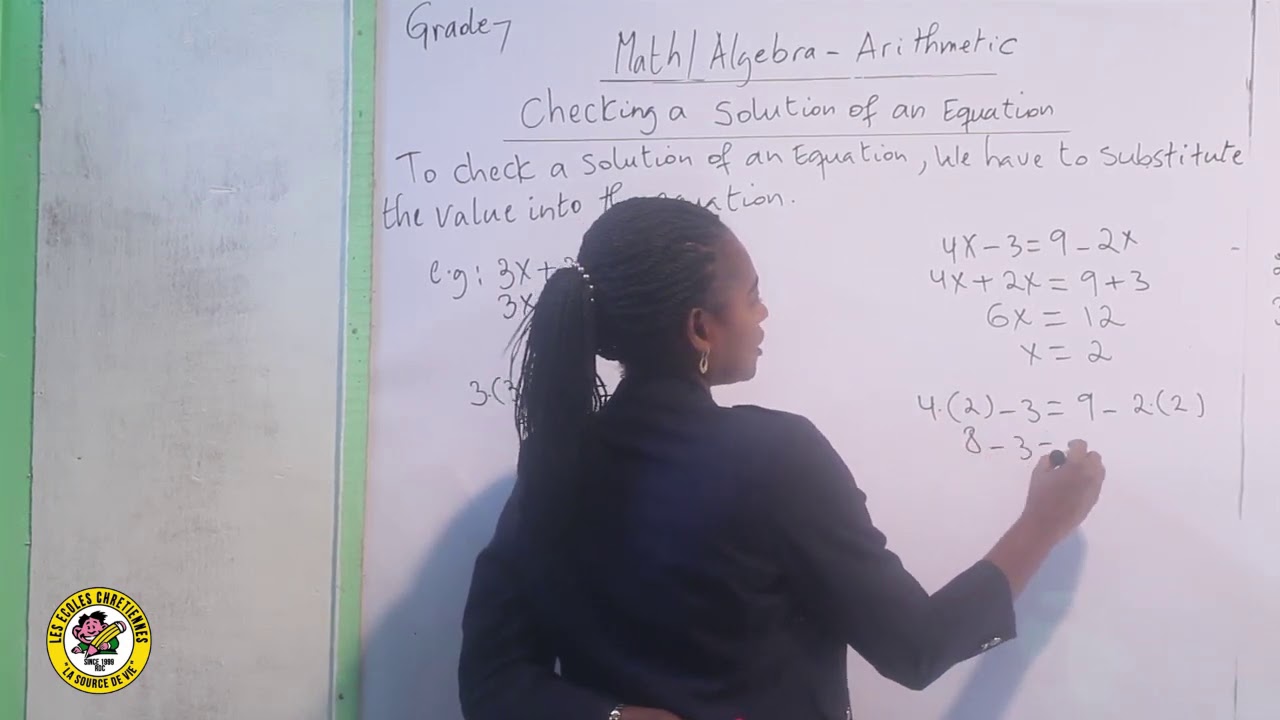 Grade 7
Math/Algebra - Arithmetic
Checking a Solution of an Equation
To check a Solution of an Equation, We have to Substitute
the value into the equation.
e.g: 3x +
3x
3.(3
4x - 3 = 9 - 2x
4x + 2x = 9 + 3
6x = 12
x = 2
4.(2) - 3 = 9 - 2.(2)
8 - 3 =
LES ECOLES CHRETIENNES
SINCE 1999
RDC
"LA SOURCE DE VIE"